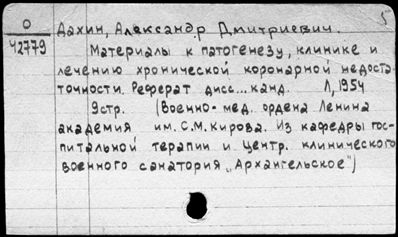 5
О Дахин, Александр Дмитриевич.
Ч2779
Материалы к патогенезу, клинике и
лечению хронической коронарной недоста-
точности. Реферат дисс...канд. Л, 1954
9стр. (Военно-мед. ордена Ленина
академия им. С.М. Кирова. Из кафедры гос-
питальной терапии и Центр. клинического
военного санатория „Архангельское")